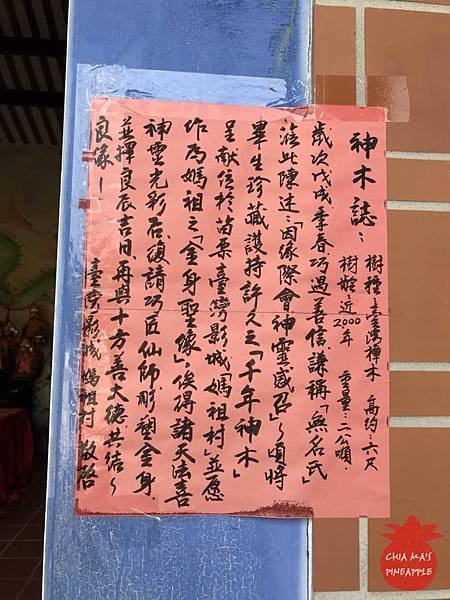 神木誌：
樹種：臺灣樟木 高約：六尺
樹齡：近2000年 重量：二公噸.
歲次戊戌季春巧遇善信謙稱「無名氏」
蒞此陳述：「因緣際會神靈感召」~頃將
畢生珍藏護持許久之「千年神木」
呈獻位於苗栗臺灣影城「媽祖村」並愿
作為媽祖之「金身聖像」，俟得諸天法喜
神靈光彩后，復請巧匠仙師彫塑金身.
並擇良辰吉日，再與十方善大德共結~
良緣！
臺灣影城 媽祖村 敬啟
CHIA MA'S
PINEAPPLE